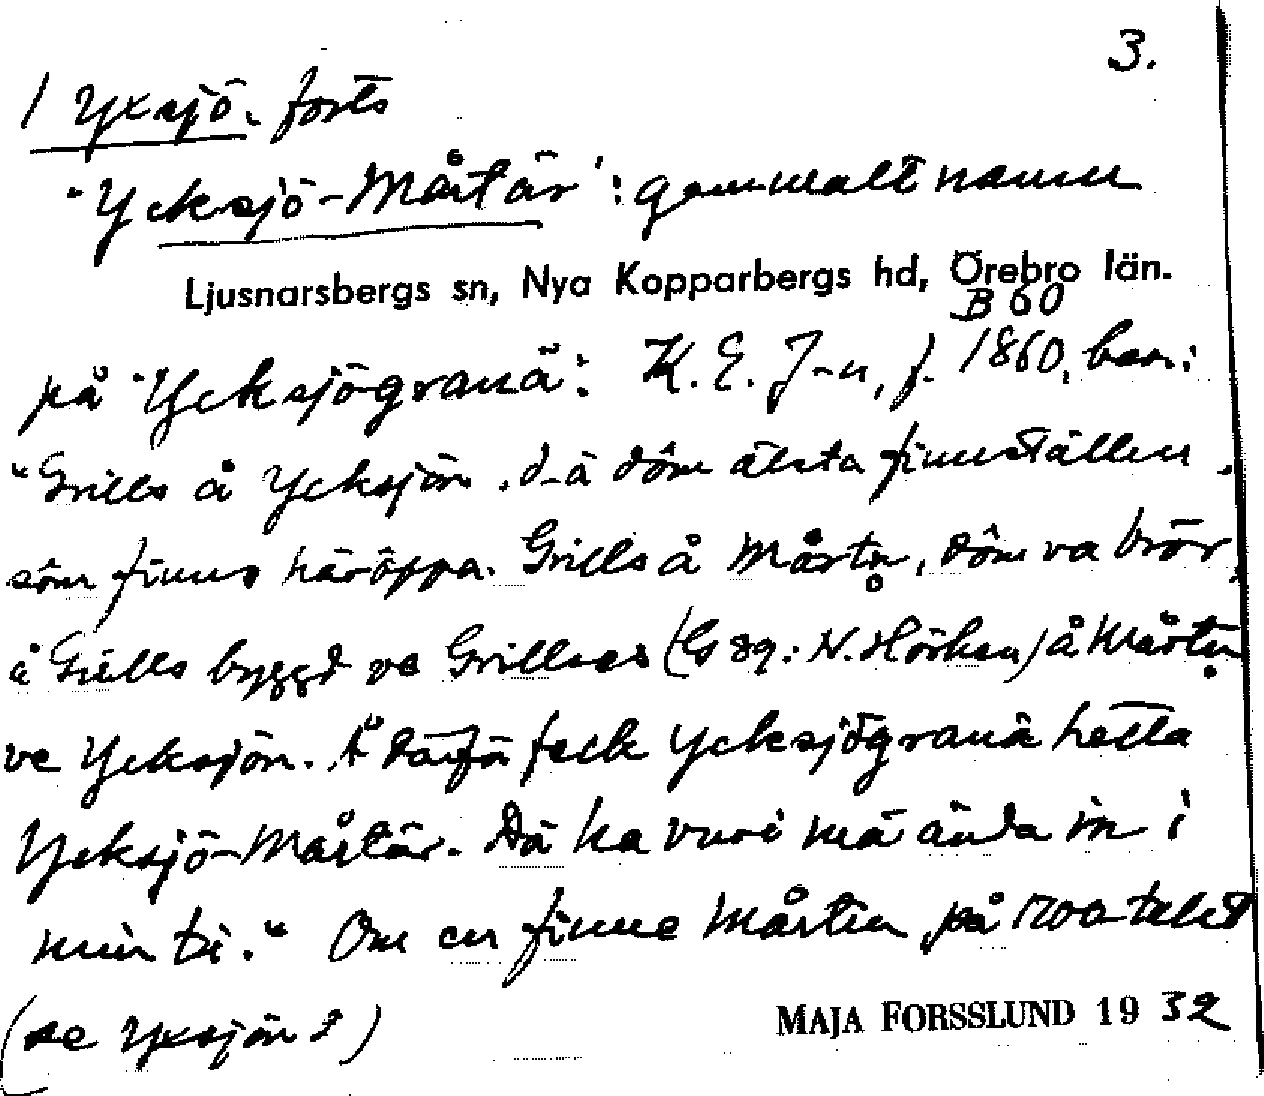 3.
/ Yxsjö. forts
"Ycksjö-Mårtär": gammalt namn
Ljusnarsbergs sn, Nya Kopparbergs hd, Örebro län.
B 60
på "Ycksjögranä": K. E. J-n, f. 1860, ber.:
"Grills å Ycksjön, d-ä dôm älsta finnställen,
sôm finns häröppa. Grills å Mårtn, dôm va brör,
å Grills byggd ve Grillsen (Gsg: N. Hörken) å Mårtn
ve Ycksjön. Å därfä feck Ycksjögranä hetta
Ycksjö-Mårtär. Dä ha vuri mä ända in i
min ti." Om en finne Mårten på 1700-talet
(se Yxsjön 2)
MAJA FORSSLUND 1932